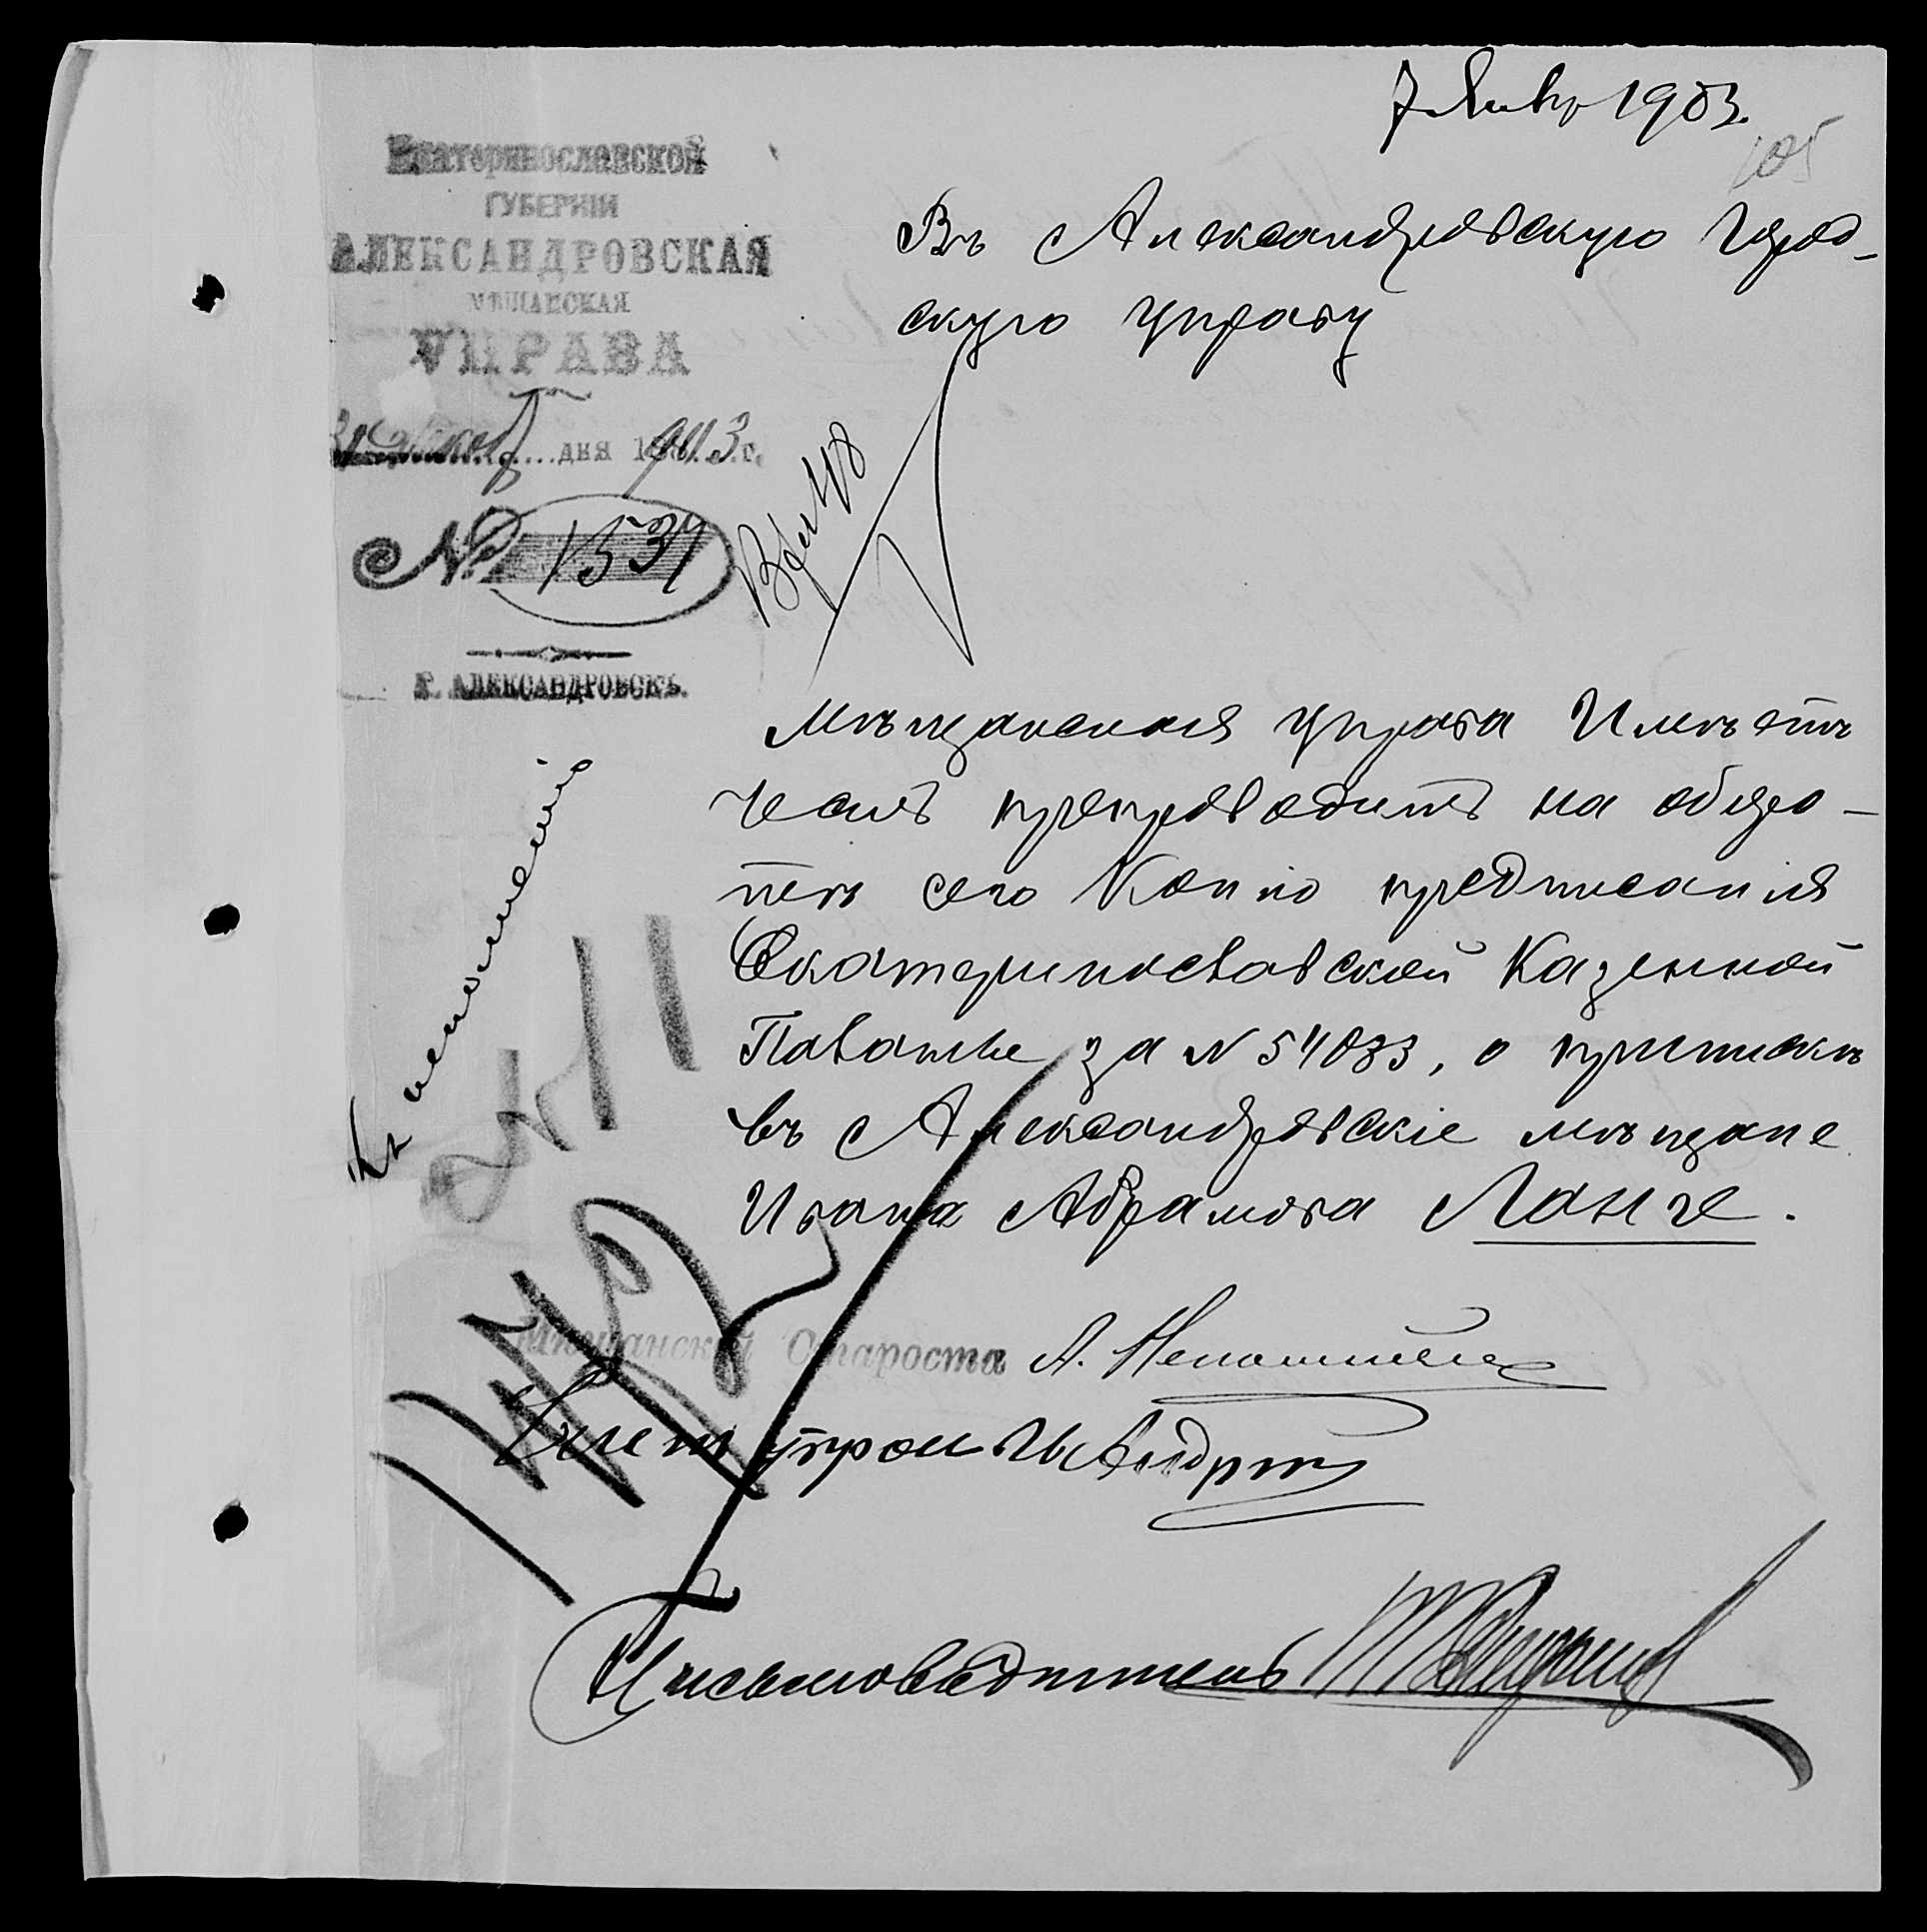 7 Янвр 1903.
105
Екатеринославской
ГУБЕРНІИ
АЛЕКСАНДРОВСКАЯ
МѢЩАНСКАЯ
УПРАВА
дня 1903 г.
№ 1537
Г. АЛЕКСАНДРОВСКЪ.
Въ Александровскую Город-
скую управу
Мѣщанская управа Имѣетъ
честь препроводить на оборо-
тѣ сего Копію предписанія
Екатеринославской Казенной
Палаты за № 54033, о припискѣ
въ Александровскіе мѣщане
Ивана Абрамова Ланге.
Къ исполненію
Мѣщанскій Староста А.
Членъ управы
Письмоводитель